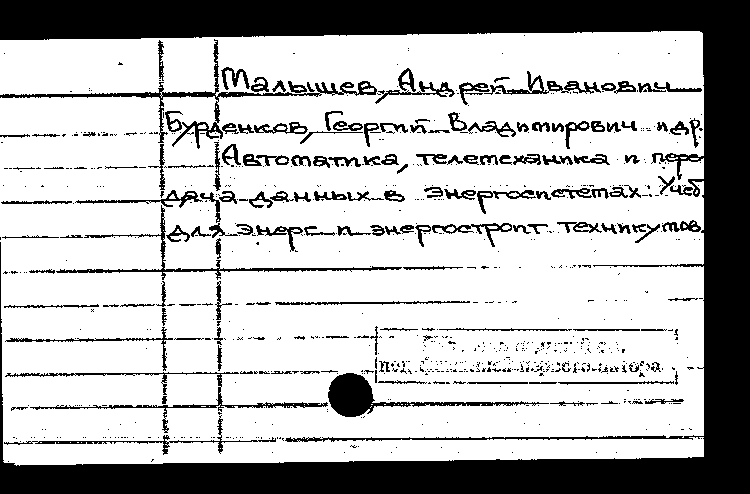 Малышев, Андрей Иванович
Бурденков, Георгий Владимирович и др.
Автоматика, телемеханика и пере-
дача данных в энергосистемах: Учеб.
для энерг и энергостроит. техникумов.
под фамилией первого автора